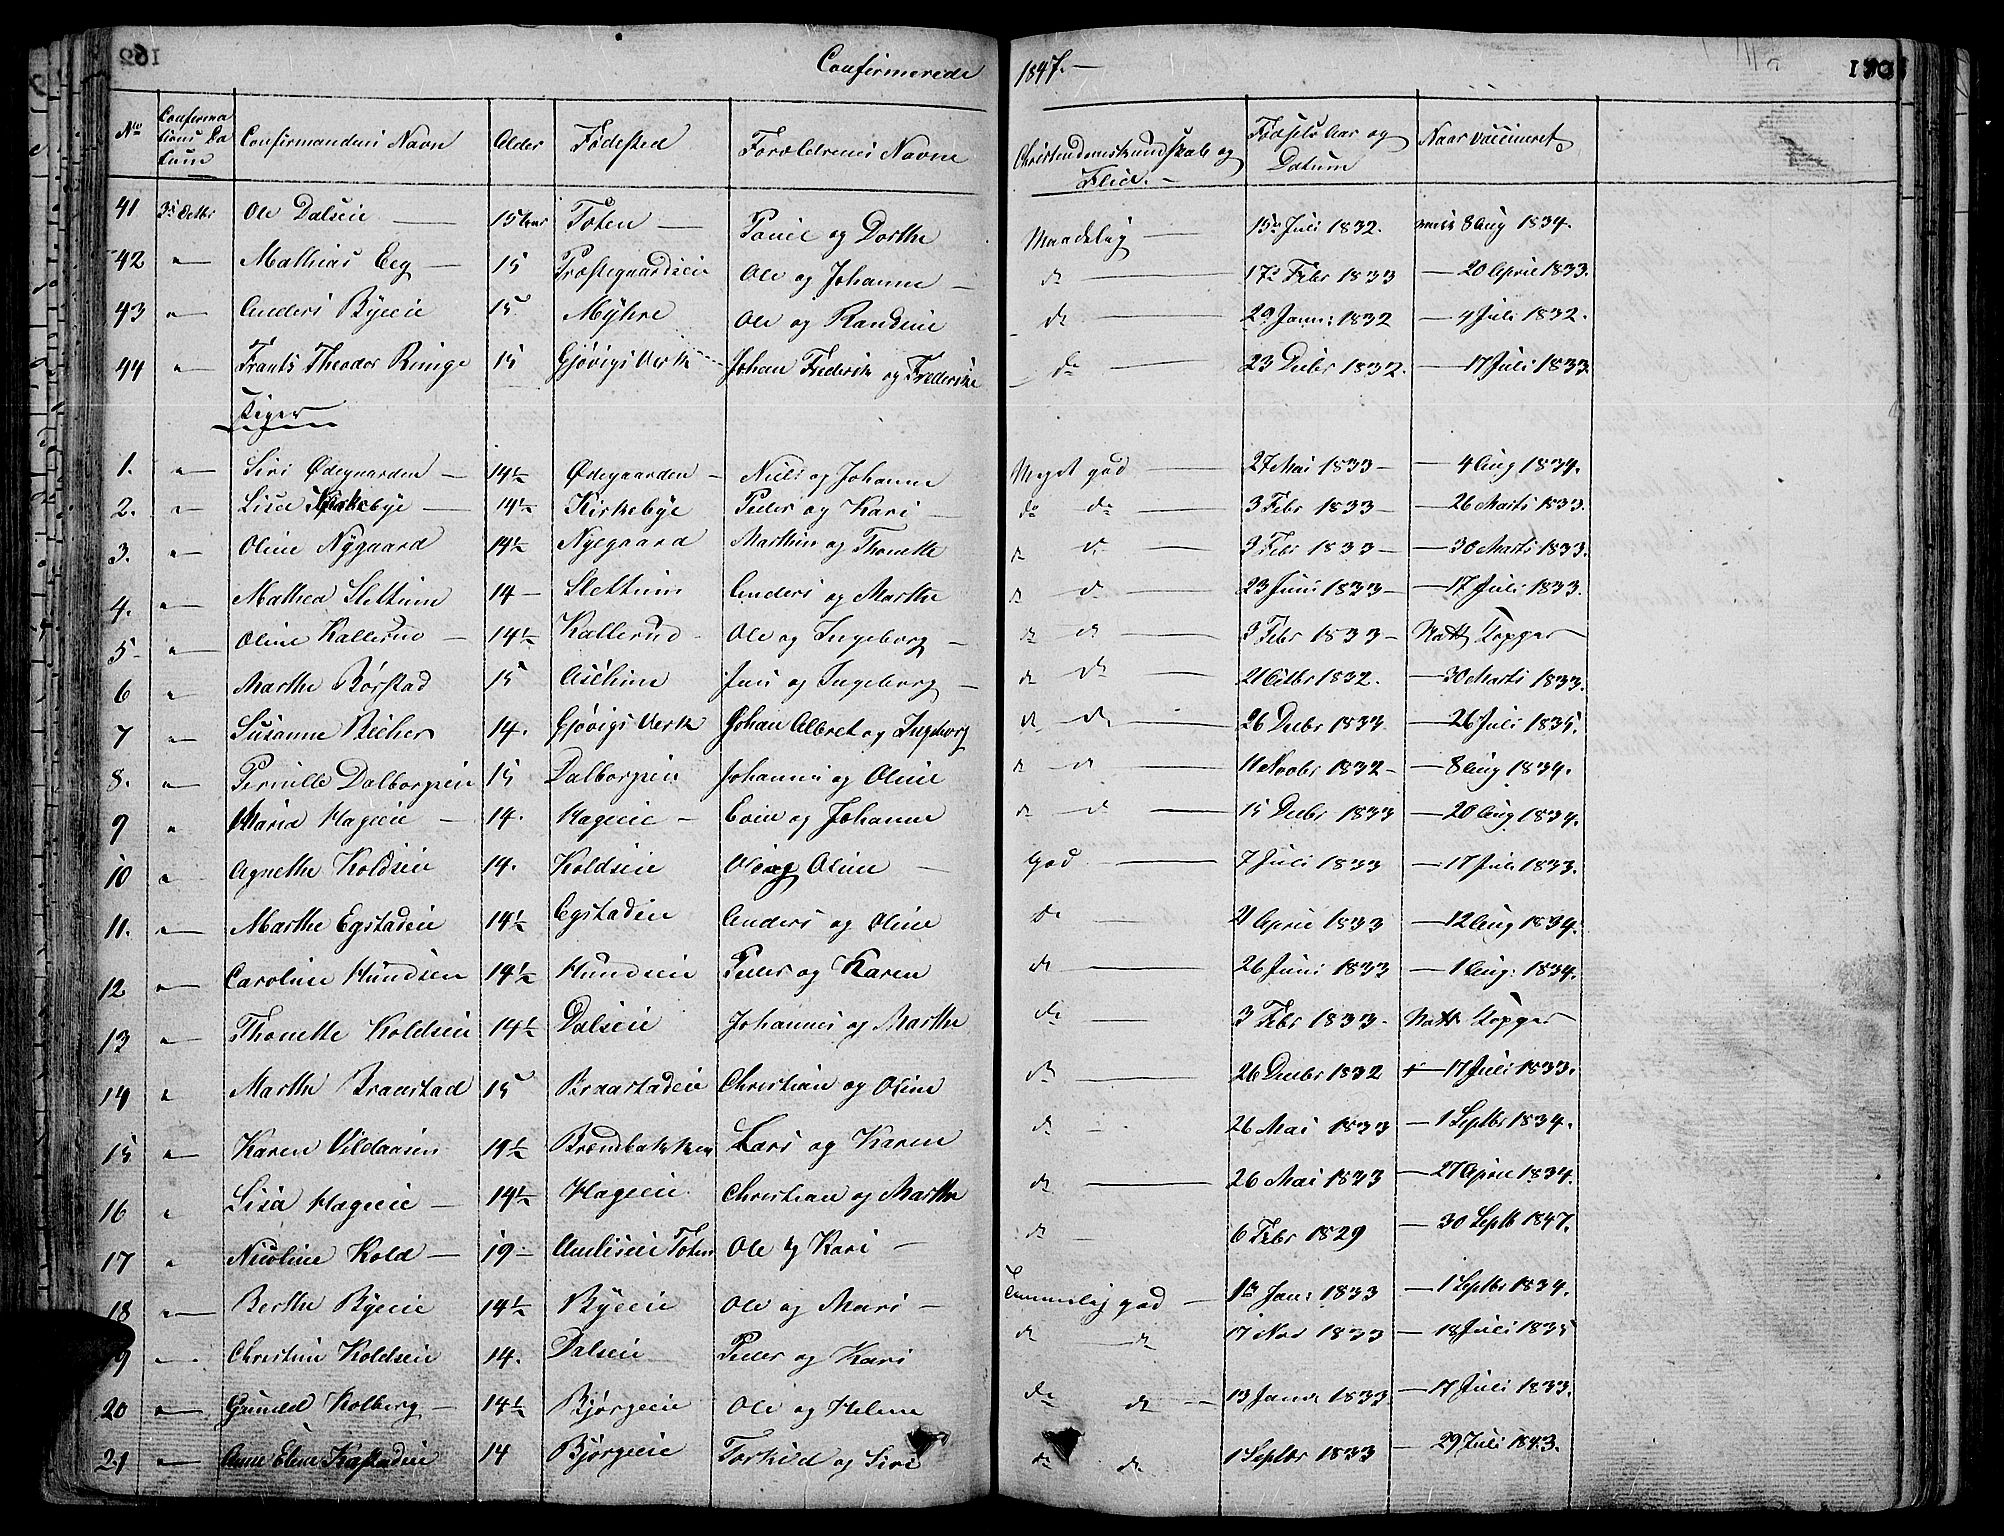 162
Confirmerede 1847.
No Confirmations Datum Confirmandens Navn Alder Fødested Forældrenes Navne Christendomskundskab og Flid. Fødsels Aar og Datum Naar vaccineret
41 3 Octbr Ole Dalseie 15 Toten og Dorthe Maadelig 15 Juli 1832. 8 Aug 1834.
42 " Mathias Eeg 15 Præstegaardseie Ole og Johanne do 17 Febr 1833 20 April 1833.
43 " Anders Byeeie 15 Myhre Ole og Randine do 29 Janr: 1832 4 Juli 1832.
44 " Frants Theodor Runge 15 Gjøvigs Verk Johan Frederik og Frederike do 23 Decbr 1832. 17 Juli 1833.
Piger
1. " Siri Ødegaarden 14½ Ødegaarden Niels og Johanne Meget god 27 Mai 1833 4 Aug 1834.
2. " Lisa Kirkebye 14½ Kirkebye Peder og Kari do do 3 Febr 1833 26 Marts 1833.
3. " Oline Nygaard 14½ Nyegaard Marthin og Thonette do do 3 Febr 1833 30 Marts 1833.
4. " Mathea Slettum 14 Slettum Anders og Marthe do do 23 Juni 1833 17 Juli 1833.
5 " Oline Kallerud 14½ Kallerud Ole og Ingeborg do do 3 Febr 1833 Natt Kopper
6 " Marthe Børstad 15 Jens og Ingeborg do do 21 Octbr 1832. 30 Marts 1833.
7 " Susanne Becher 14. Gjøvigs Verk Johan Albret og Ingeborg do do 26 Decbr 1833 26 Juli 1835.
8. " Pernille Dalborgeie 15 Dalborgeie Johannes og Oline do do 11 Novbr 1832 8 Aug 1834.
9 " Maria Hageeie 14. Hageeie Even og Johanne do do 15 Decbr 1833 20 Aug 1834.
10 " Agnethe Koldseie 14. Koldseie Ole og Oline God 7 Juli 1833 17 Juli 1833.
11. " Marthe Egstadeie 14½ Egstadeie Anders og Oline do 21 April 1833 12 Aug 1834.
12 " Caroline Hundseie 14½ Hundseie Peder og Karen do 26 Juni 1833 1 Aug: 1834.
13 " Thonette Koldseie 14½ Dalseie Johannes og Marthe do 3 Febr 1833 Natt Kopper
14 " Marthe Braastad 15 Braastadeie Christian og Oline do 26 Decbr 1832 17 Juli 1833.
15 " Karen Vildaasen 14½ Brændbakken Lars og Karen do 26 Mai 1833 1 Septbr 1834.
16 " Lisa Hageeie 14½ Hageeie Christian og Marthe do 26 Mai 1833 27 April 1834.
17 " Nicoline Kold 19 Toten Ole og Kari do 6 Febr 1829 30 Septb 1847.
18 " Berthe Byeeie 14½ Byeeie Ole og Mari Temmelig god Jan: 1833 1 Septbr 1834.
19 " Christine Koldseie 14. Dalseie Peder og Kari do do 17 Nov 1833 18 Juli 1835
20 " Gunild Kolberg 14½ Bjørgeeie Ole og Helene do do 13 Janr 1833 17 Juli 1833.
21 " Anne Elene Kastadeie 14 Bjørgeeie Torkild og Siri do do 1 Septbr 1833 29 Juli 1843.